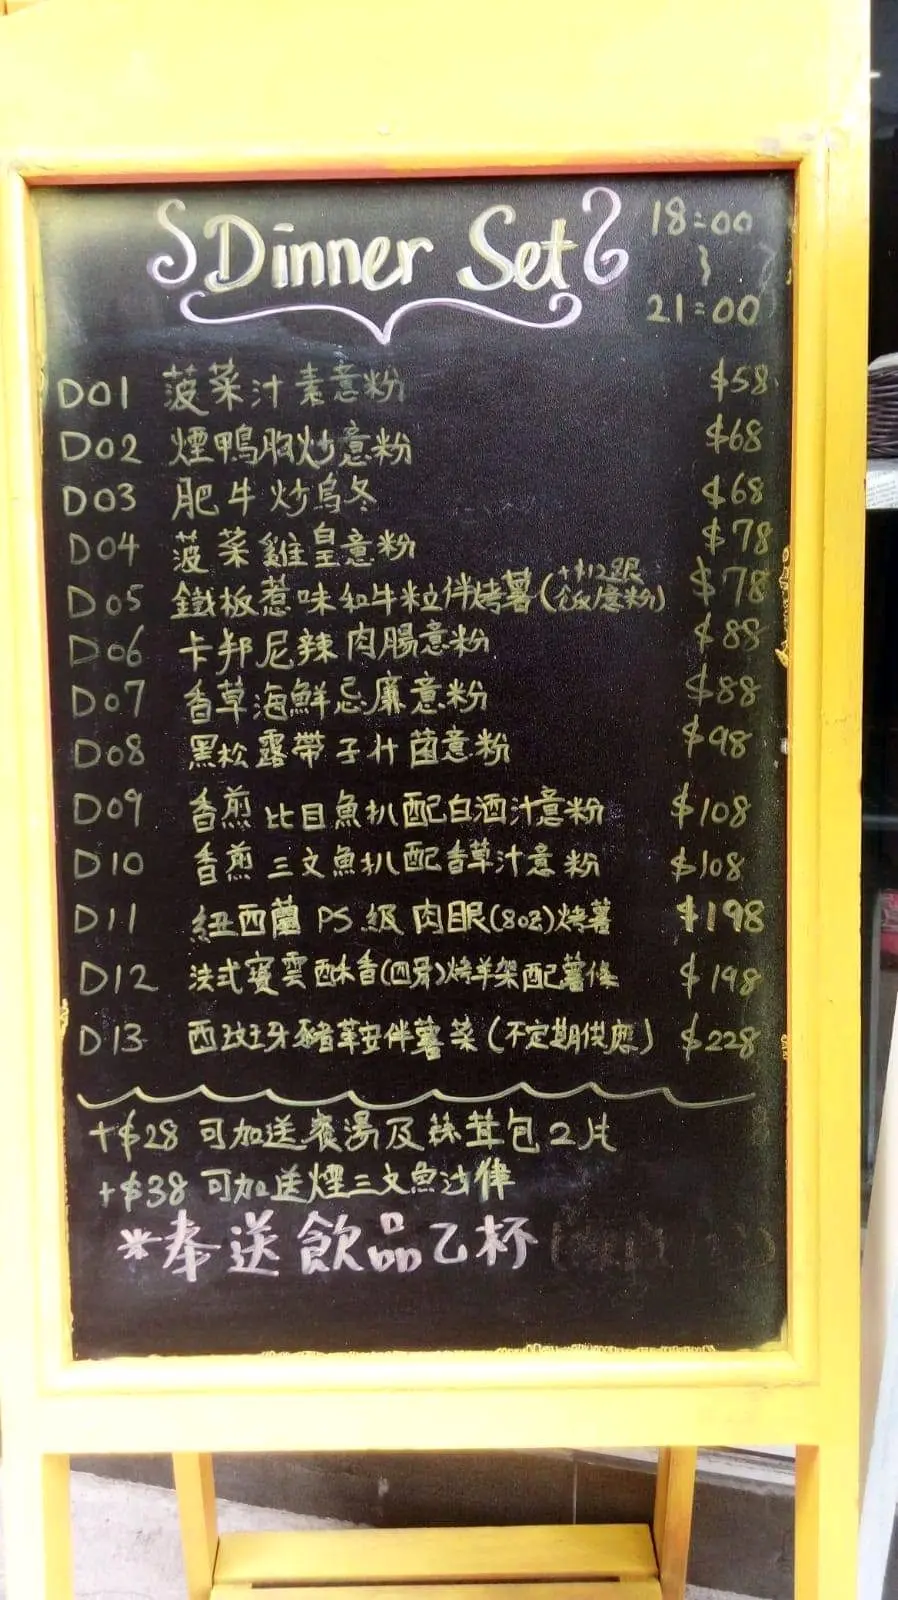 Dinner Set
18:00
~
21:00
D01 菠菜汁素意粉 $58
D02 煙鴨胸炒意粉 $68
D03 肥牛炒烏冬 $68
D04 菠菜雞皇意粉 $78
D05 鐵板惹味和牛粒伴烤薯(+$12跟飯/意粉) $78
D06 卡邦尼辣肉腸意粉 $88
D07 香草海鮮忌廉意粉 $88
D08 黑松露帶子什菌意粉 $98
D09 香煎比目魚扒配白酒汁意粉 $108
D10 香煎三文魚扒配香草汁意粉 $108
D11 紐西蘭PS級肉眼(8oz)烤薯 $198
D12 法式寶雲酥香(四骨)烤羊架配薯條 $198
D13 西班牙豬鞍伴薯菜(不定期供應) $228
+$28 可加送餐湯及蒜茸包2片
+$38 可加送煙三文魚沙律
*奉送飲品乙杯